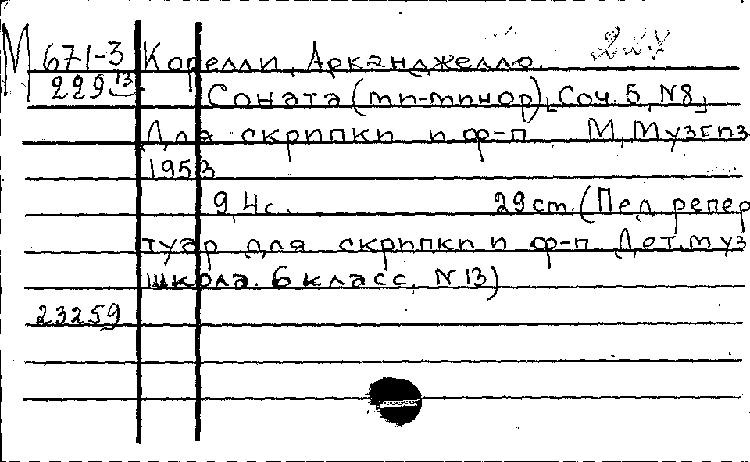 М 671-3 Корелли, Арканджелло.
229 13 Соната (ми-минор), [Соч. 5, N8]
Для скрипки и ф-п М, Музгиз
1953
9,4с. 29cm (Пед. репер
туар для скрипки и ф-п. Дет. муз
школа. 6 класс. N13)
23259